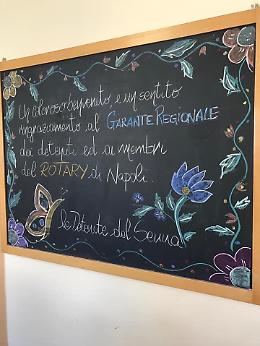 Un caloroso benvenuto e un sentito
ringraziamento al GARANTE REGIONALE
dei detenuti ed ai membri
del ROTARY di Napoli.
le Detenute del Senna